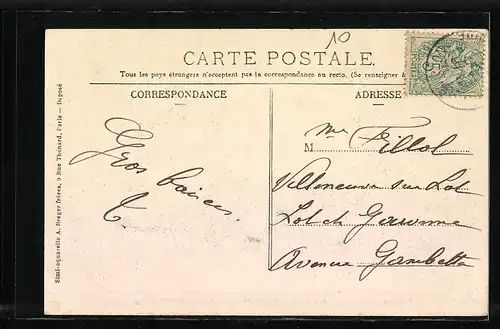 10
CARTE POSTALE.
Tous les pays étrangers n'acceptent pas la correspondance au recto. (Se renseigner à
CORRESPONDANCE
ADRESSE
Gros baisers
M
Me Pillol
Villeneuve sur Lot
Lot et Garonne
Avenue Gambetta
Simili-aquarelle A. Breger frères, 9 Rue Thénard, Paris — Déposé